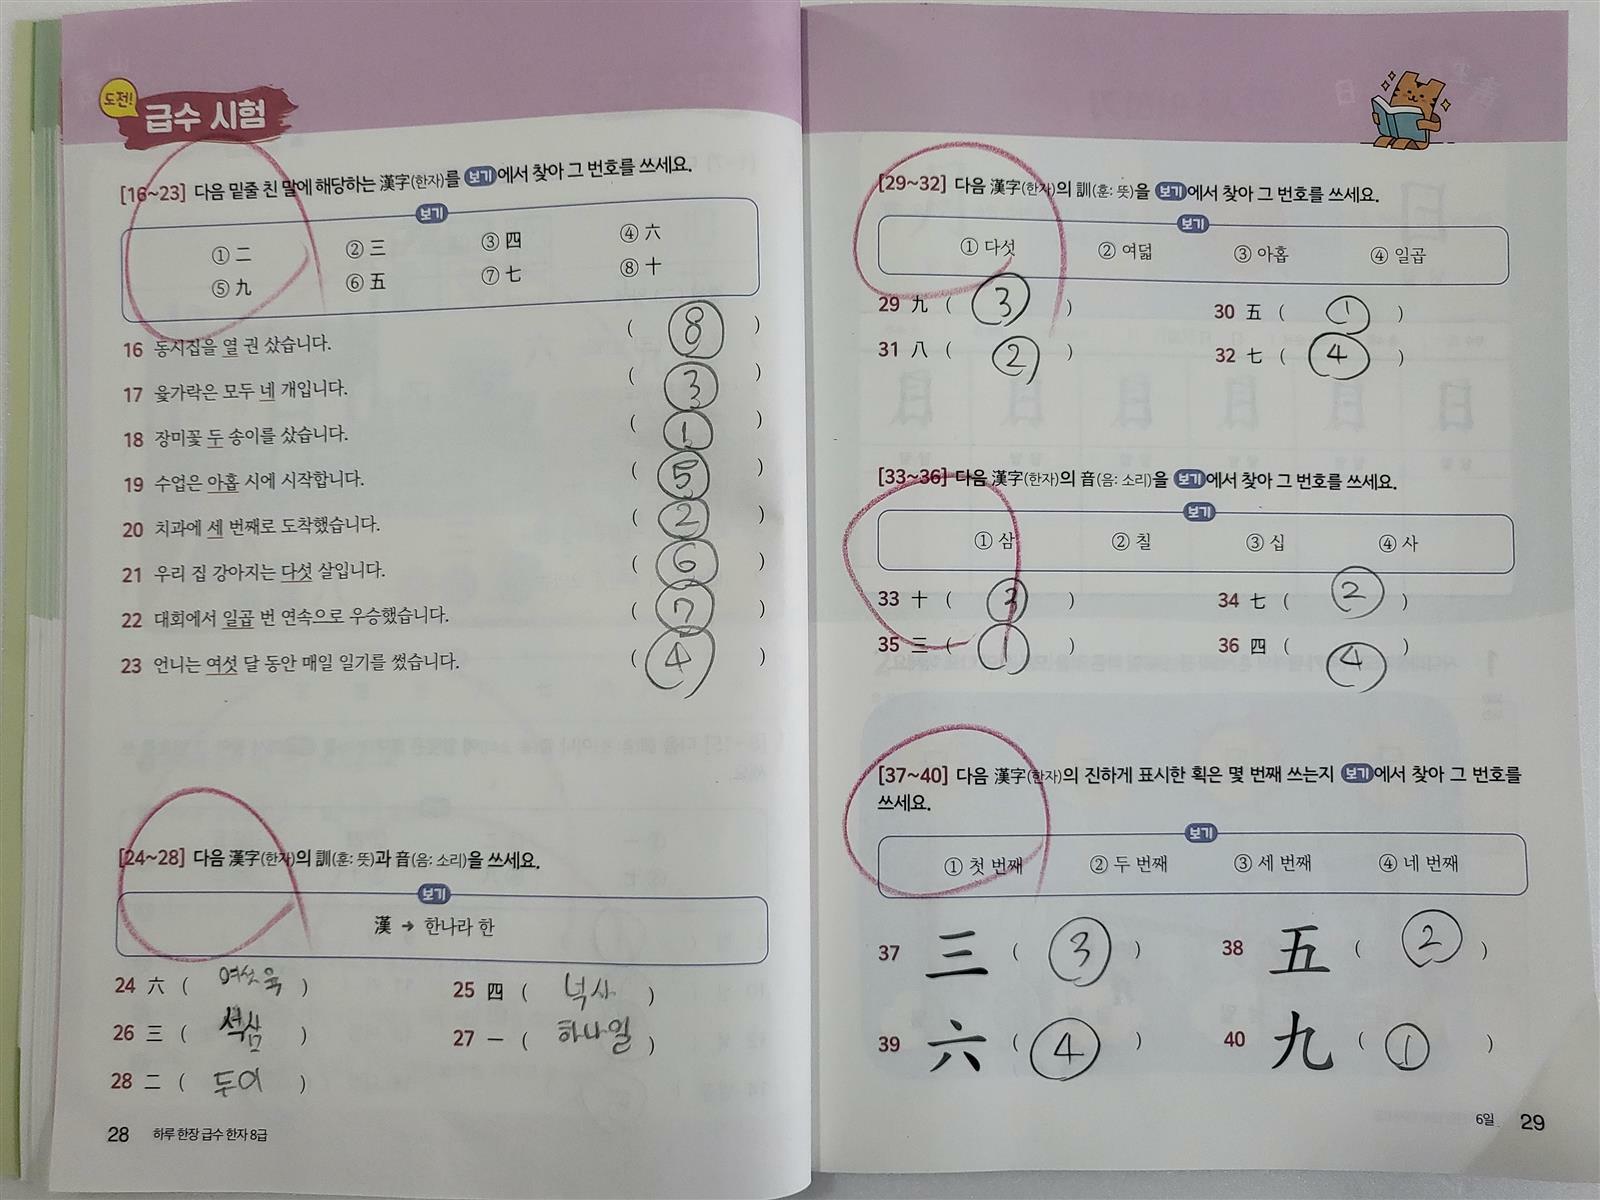 도전!
급수 시험
[16~23] 다음 밑줄 친 말에 해당하는 漢字(한자)를 보기에서 찾아 그 번호를 쓰세요.
보기
① 二 ② 三 ③ 四 ④ 六
⑤ 九 ⑥ 五 ⑦ 七 ⑧ 十
16 동시집을 열 권 샀습니다. ( ⑧ )
17 윷가락은 모두 네 개입니다. ( ③ )
18 장미꽃 두 송이를 샀습니다. ( ① )
19 수업은 아홉 시에 시작합니다. ( ⑤ )
20 치과에 세 번째로 도착했습니다. ( ② )
21 우리 집 강아지는 다섯 살입니다. ( ⑥ )
22 대회에서 일곱 번 연속으로 우승했습니다. ( ⑦ )
23 언니는 여섯 달 동안 매일 일기를 썼습니다. ( ④ )
[24~28] 다음 漢字(한자)의 訓(훈: 뜻)과 音(음: 소리)을 쓰세요.
보기
漢 → 한나라 한
24 六 ( 여섯 육 ) 25 四 ( 넉사 )
26 三 ( 석삼 ) 27 一 ( 하나일 )
28 二 ( 두이 )
28 하루 한장 급수 한자 8급
[29~32] 다음 漢字(한자)의 訓(훈: 뜻)을 보기에서 찾아 그 번호를 쓰세요.
보기
① 다섯 ② 여덟 ③ 아홉 ④ 일곱
29 九 ( ③ ) 30 五 ( ① )
31 八 ( ② ) 32 七 ( ④ )
[33~36] 다음 漢字(한자)의 音(음: 소리)을 보기에서 찾아 그 번호를 쓰세요.
보기
① 삼 ② 칠 ③ 십 ④ 사
33 十 ( ③ ) 34 七 ( ② )
35 三 ( ① ) 36 四 ( ④ )
[37~40] 다음 漢字(한자)의 진하게 표시한 획은 몇 번째 쓰는지 보기에서 찾아 그 번호를
쓰세요.
보기
① 첫 번째 ② 두 번째 ③ 세 번째 ④ 네 번째
37 三 ( ③ ) 38 五 ( ② )
39 六 ( ④ ) 40 九 ( ① )
6일 29